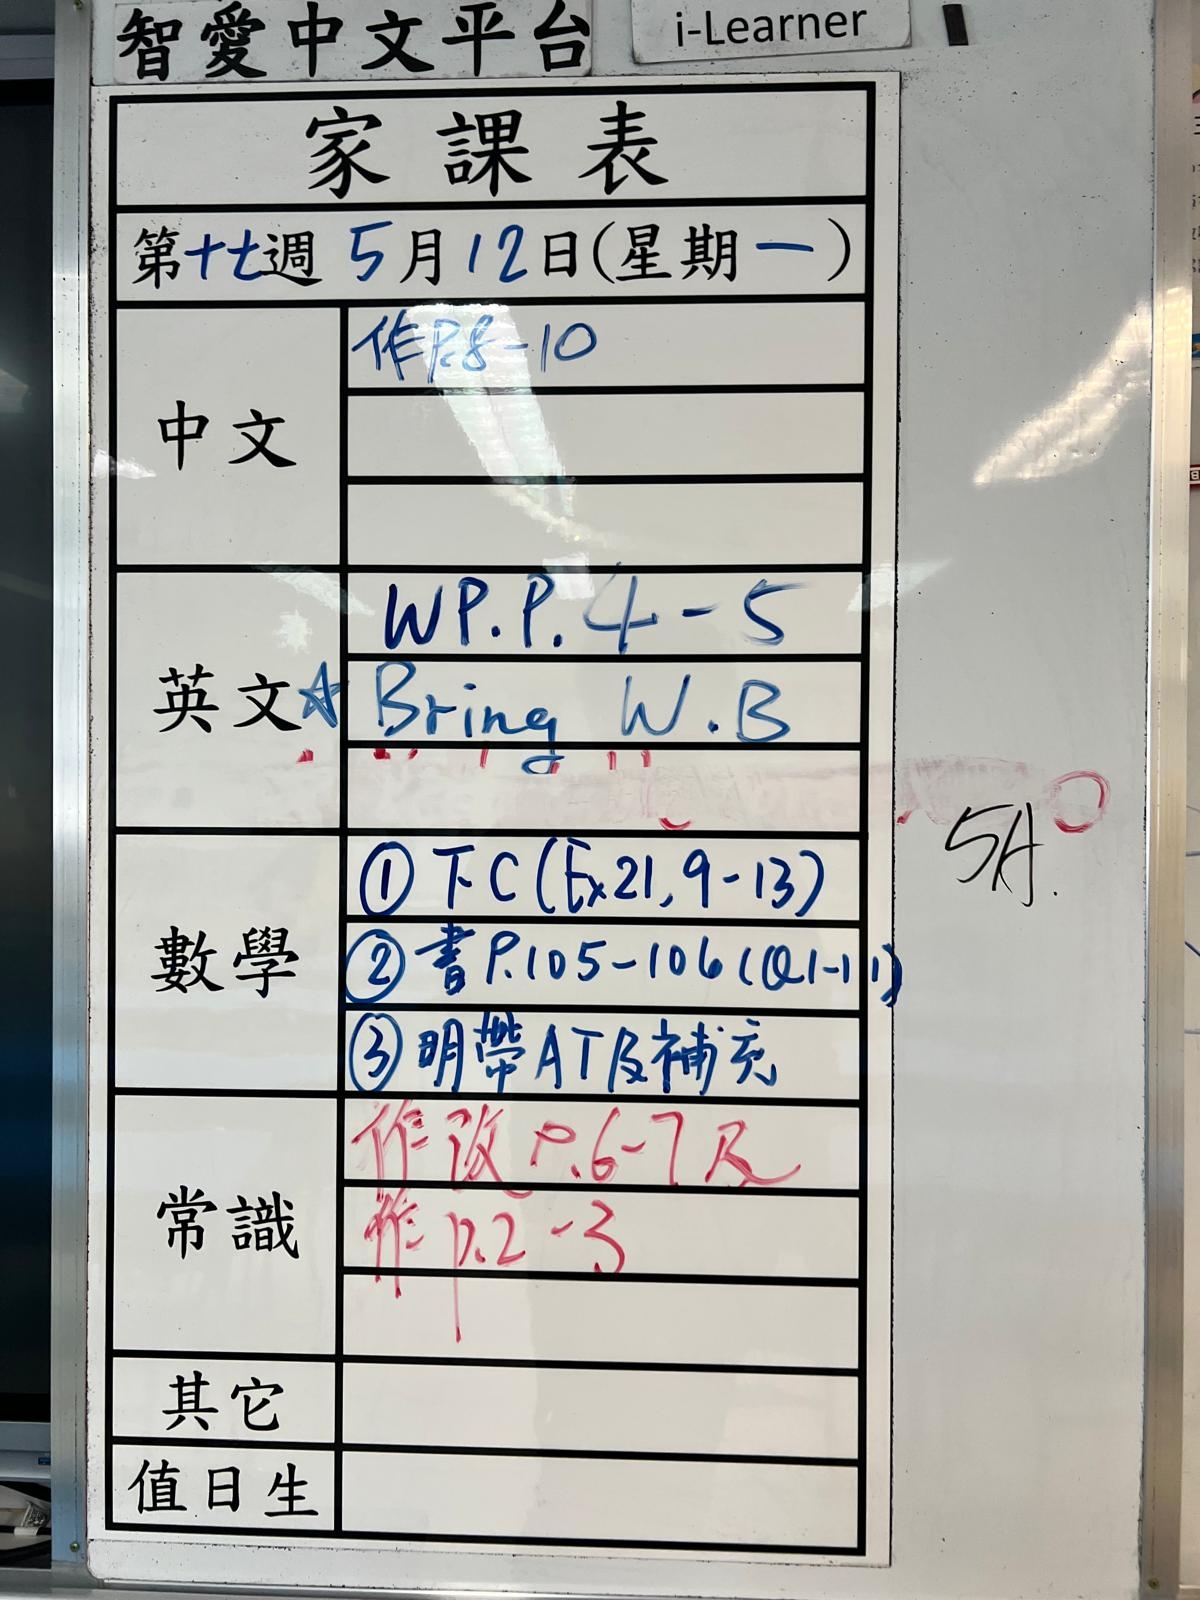 智愛中文平台
i-Learner
家課表
第十七週 5月12日(星期一)
中文
作P.8-10
英文
WP.P.4-5
☆ Bring W.B
數學
① 下C(Ex21, 9-13)
② 書P.105-106(Q1-11)
③ 明帶AT及補充
5A.
常識
作改P.6-7及
作p.2-3
其它
值日生